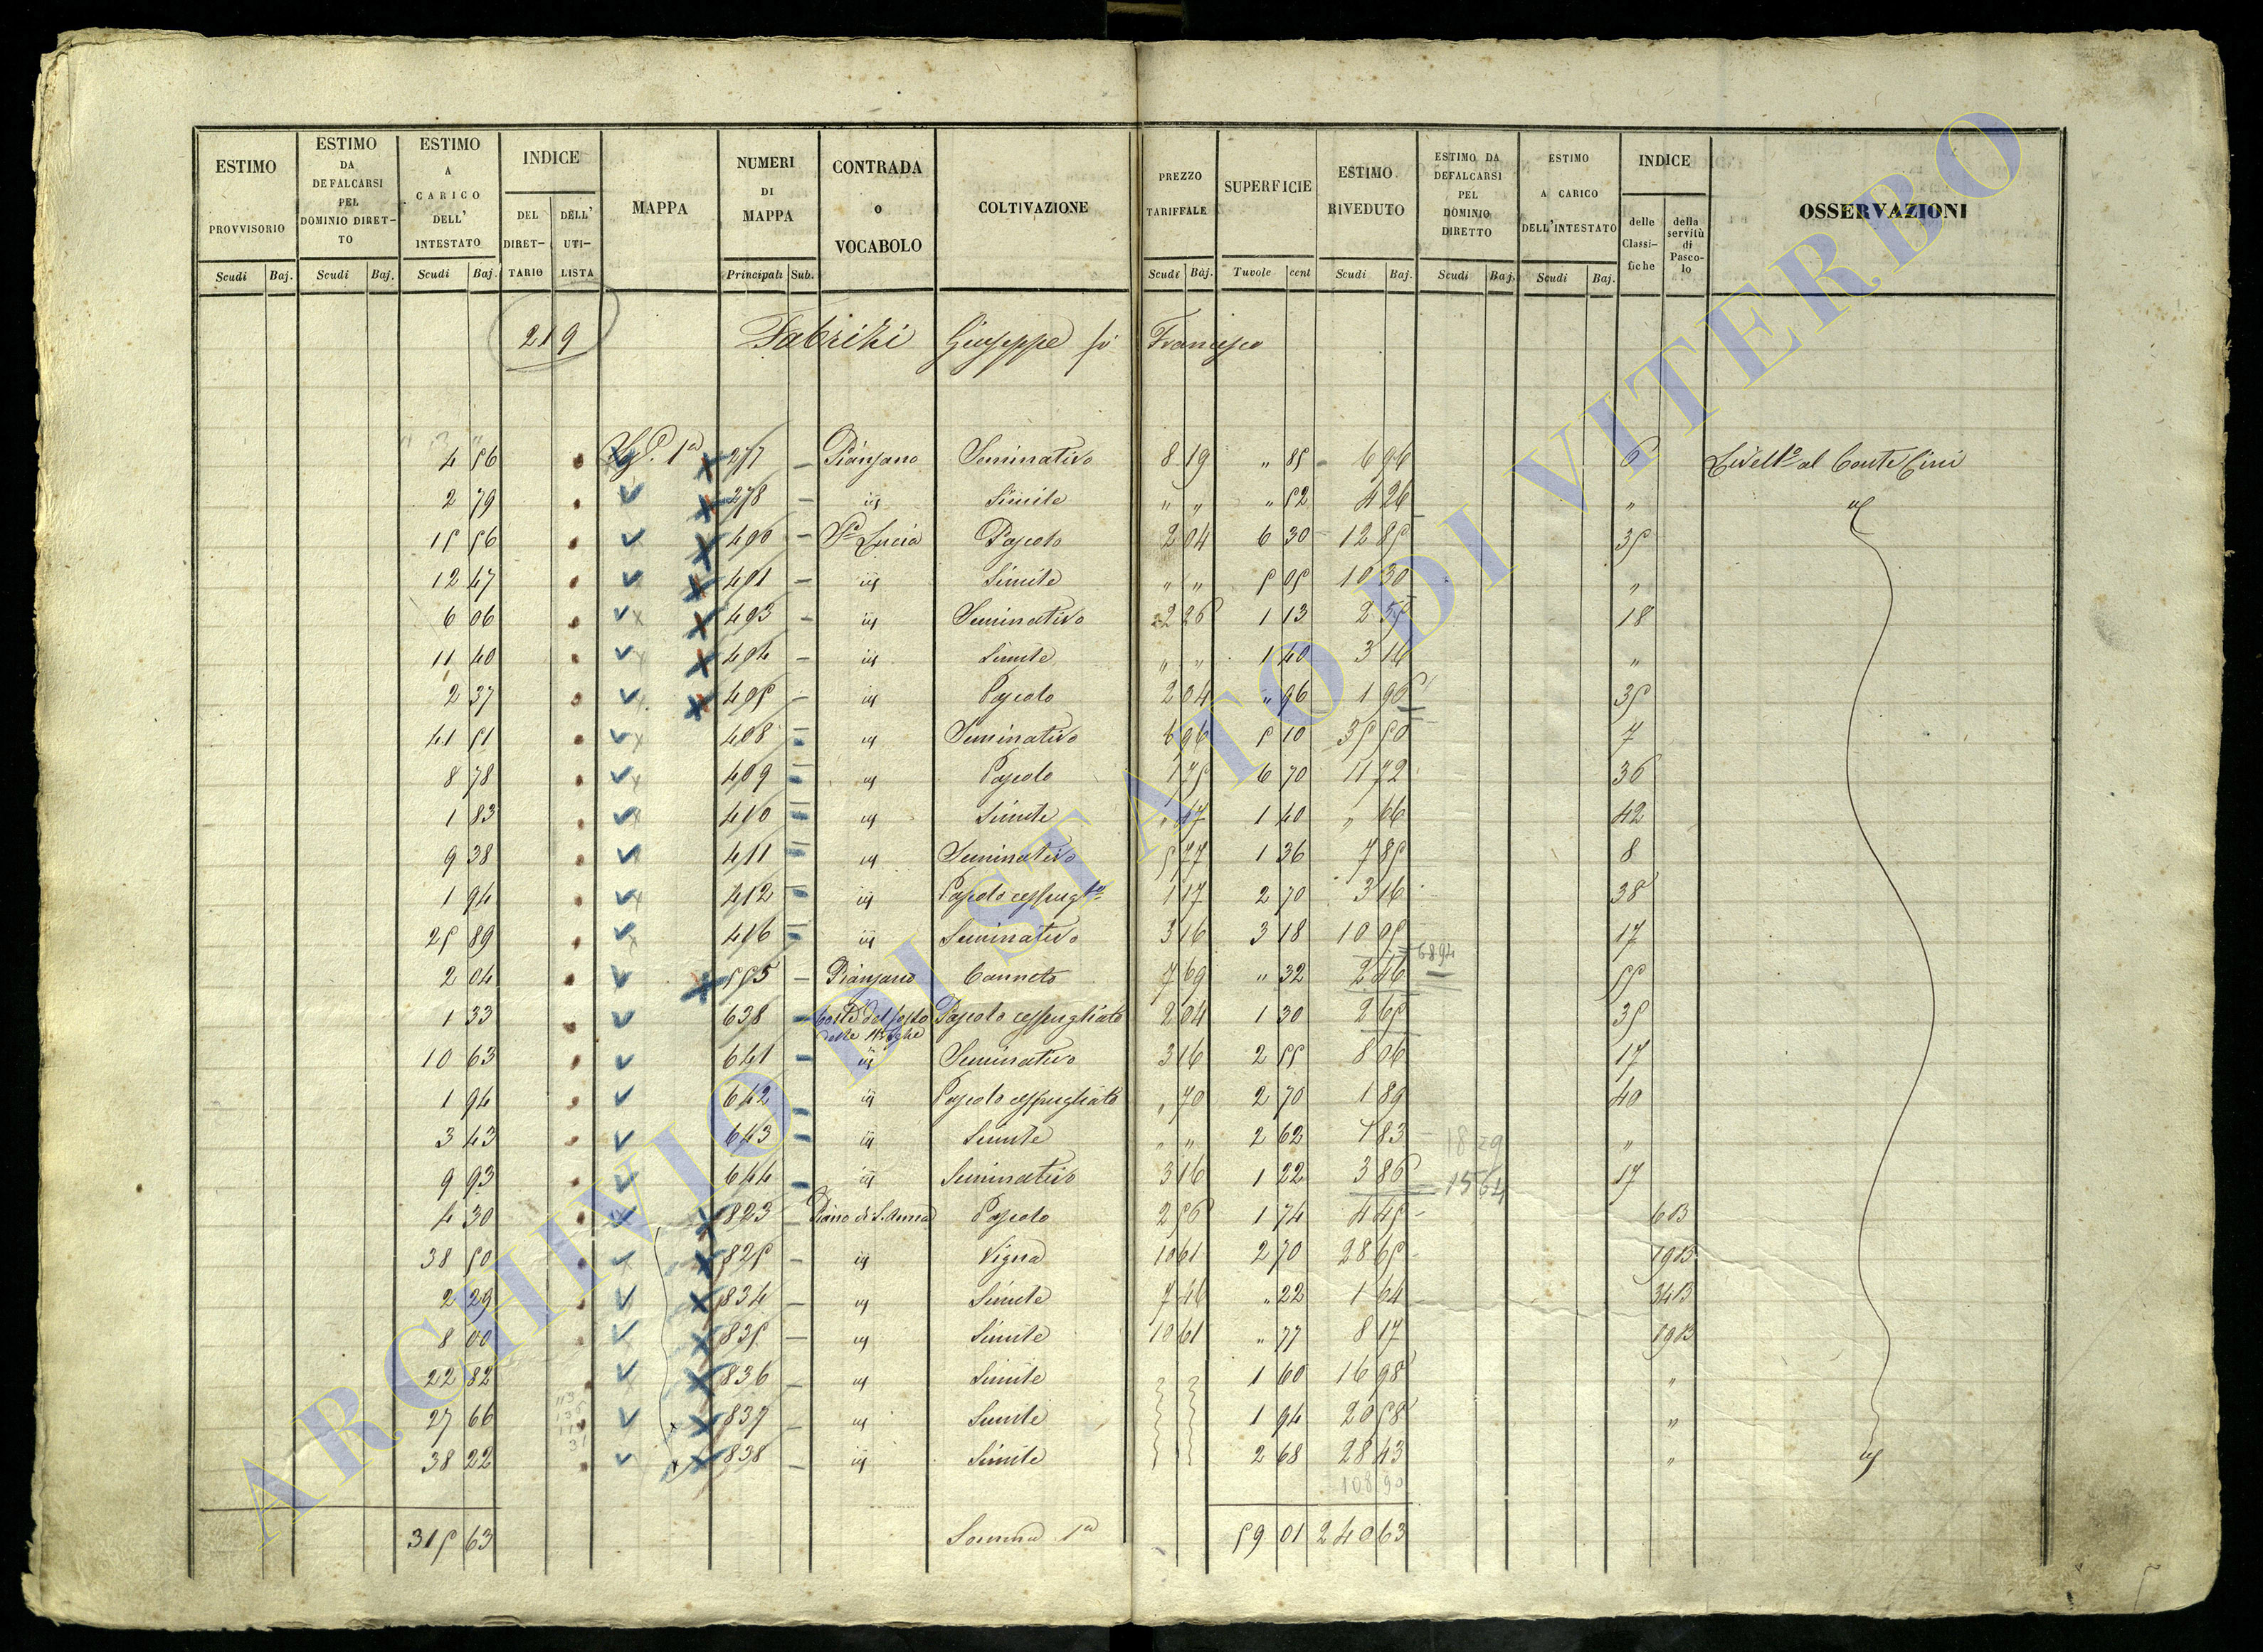 ESTIMO PROVVISORIO Scudi Baj.
ESTIMO DA DEFALCARSI PEL DOMINIO DIRET-TO Scudi Baj.
ESTIMO A CARICO DELL' INTESTATO Scudi Baj.
INDICE DEL DIRET-TARIO DELL' UTI-LISTA
MAPPA
NUMERI DI MAPPA Principali Sub.
CONTRADA O VOCABOLO
COLTIVAZIONE
PREZZO TARIFFALE Scudi Baj.
SUPERFICIE Tavole cent
ESTIMO RIVEDUTO Scudi Baj.
ESTIMO DA DEFALCARSI PEL DOMINIO DIRETTO Scudi Baj.
ESTIMO A CARICO DELL'INTESTATO Scudi Baj.
INDICE delle Classi-fiche della servitù di Pasco-lo
OSSERVAZIONI
219 Fabrizi Giuseppe fu Francesco
4 56 1a 277 Pianzano Seminativo 8 19 " 85 6 96 6 Livello al Conte Cini
2 79 278 " Simile " " " 52 4 26 "
15 56 400 Sa Lucia Pascolo 2 04 6 30 12 85 35
12 47 401 " Simile " " 5 05 10 30 "
6 06 403 " Seminativo 2 26 1 13 2 55 18
11 40 404 " Simile " " 1 40 3 16 "
2 37 405 " Pascolo 2 04 " 96 1 96 35
41 51 408 " Seminativo 6 96 5 10 35 50 7
8 78 409 " Pascolo 1 75 6 70 11 72 36
1 83 410 " Simile " 47 1 40 " 66 42
9 38 411 " Seminativo 5 77 1 36 7 85 8
1 94 412 " Pascolo cespugto 1 17 2 70 3 16 38
25 89 416 " Seminativo 3 16 3 18 10 05 17
6894
2 04 555 Pianzano Canneto 7 69 " 32 2 46 55
1 33 638 Coste del fosso delle Pascolo cespugliato 2 04 1 30 2 65 35
10 63 641 " Seminativo 3 16 2 55 8 06 17
1 94 642 " Pascolo cespugliato " 70 2 70 1 89 40
3 43 643 " Simile " " 2 62 1 83 "
18 29
9 93 644 " Seminativo 3 16 1 22 3 86 17
15 64
4 30 823 Piano di S. Anna Pascolo 2 56 1 74 4 45 613
38 50 825 " Vigna 10 61 2 70 28 65 1913
2 29 834 " Simile 7 46 " 22 1 64 3413
8 00 835 " Simile 10 61 " 77 8 17 1913
22 82 836 " Simile 1 60 16 98 "
27 66 837 " Simile 1 94 20 58 "
38 22 838 " Simile 2 68 28 43 "
108 90
315 63 Somma 1a 59 01 240 63
ARCHIVIO DI STATO DI VITERBO